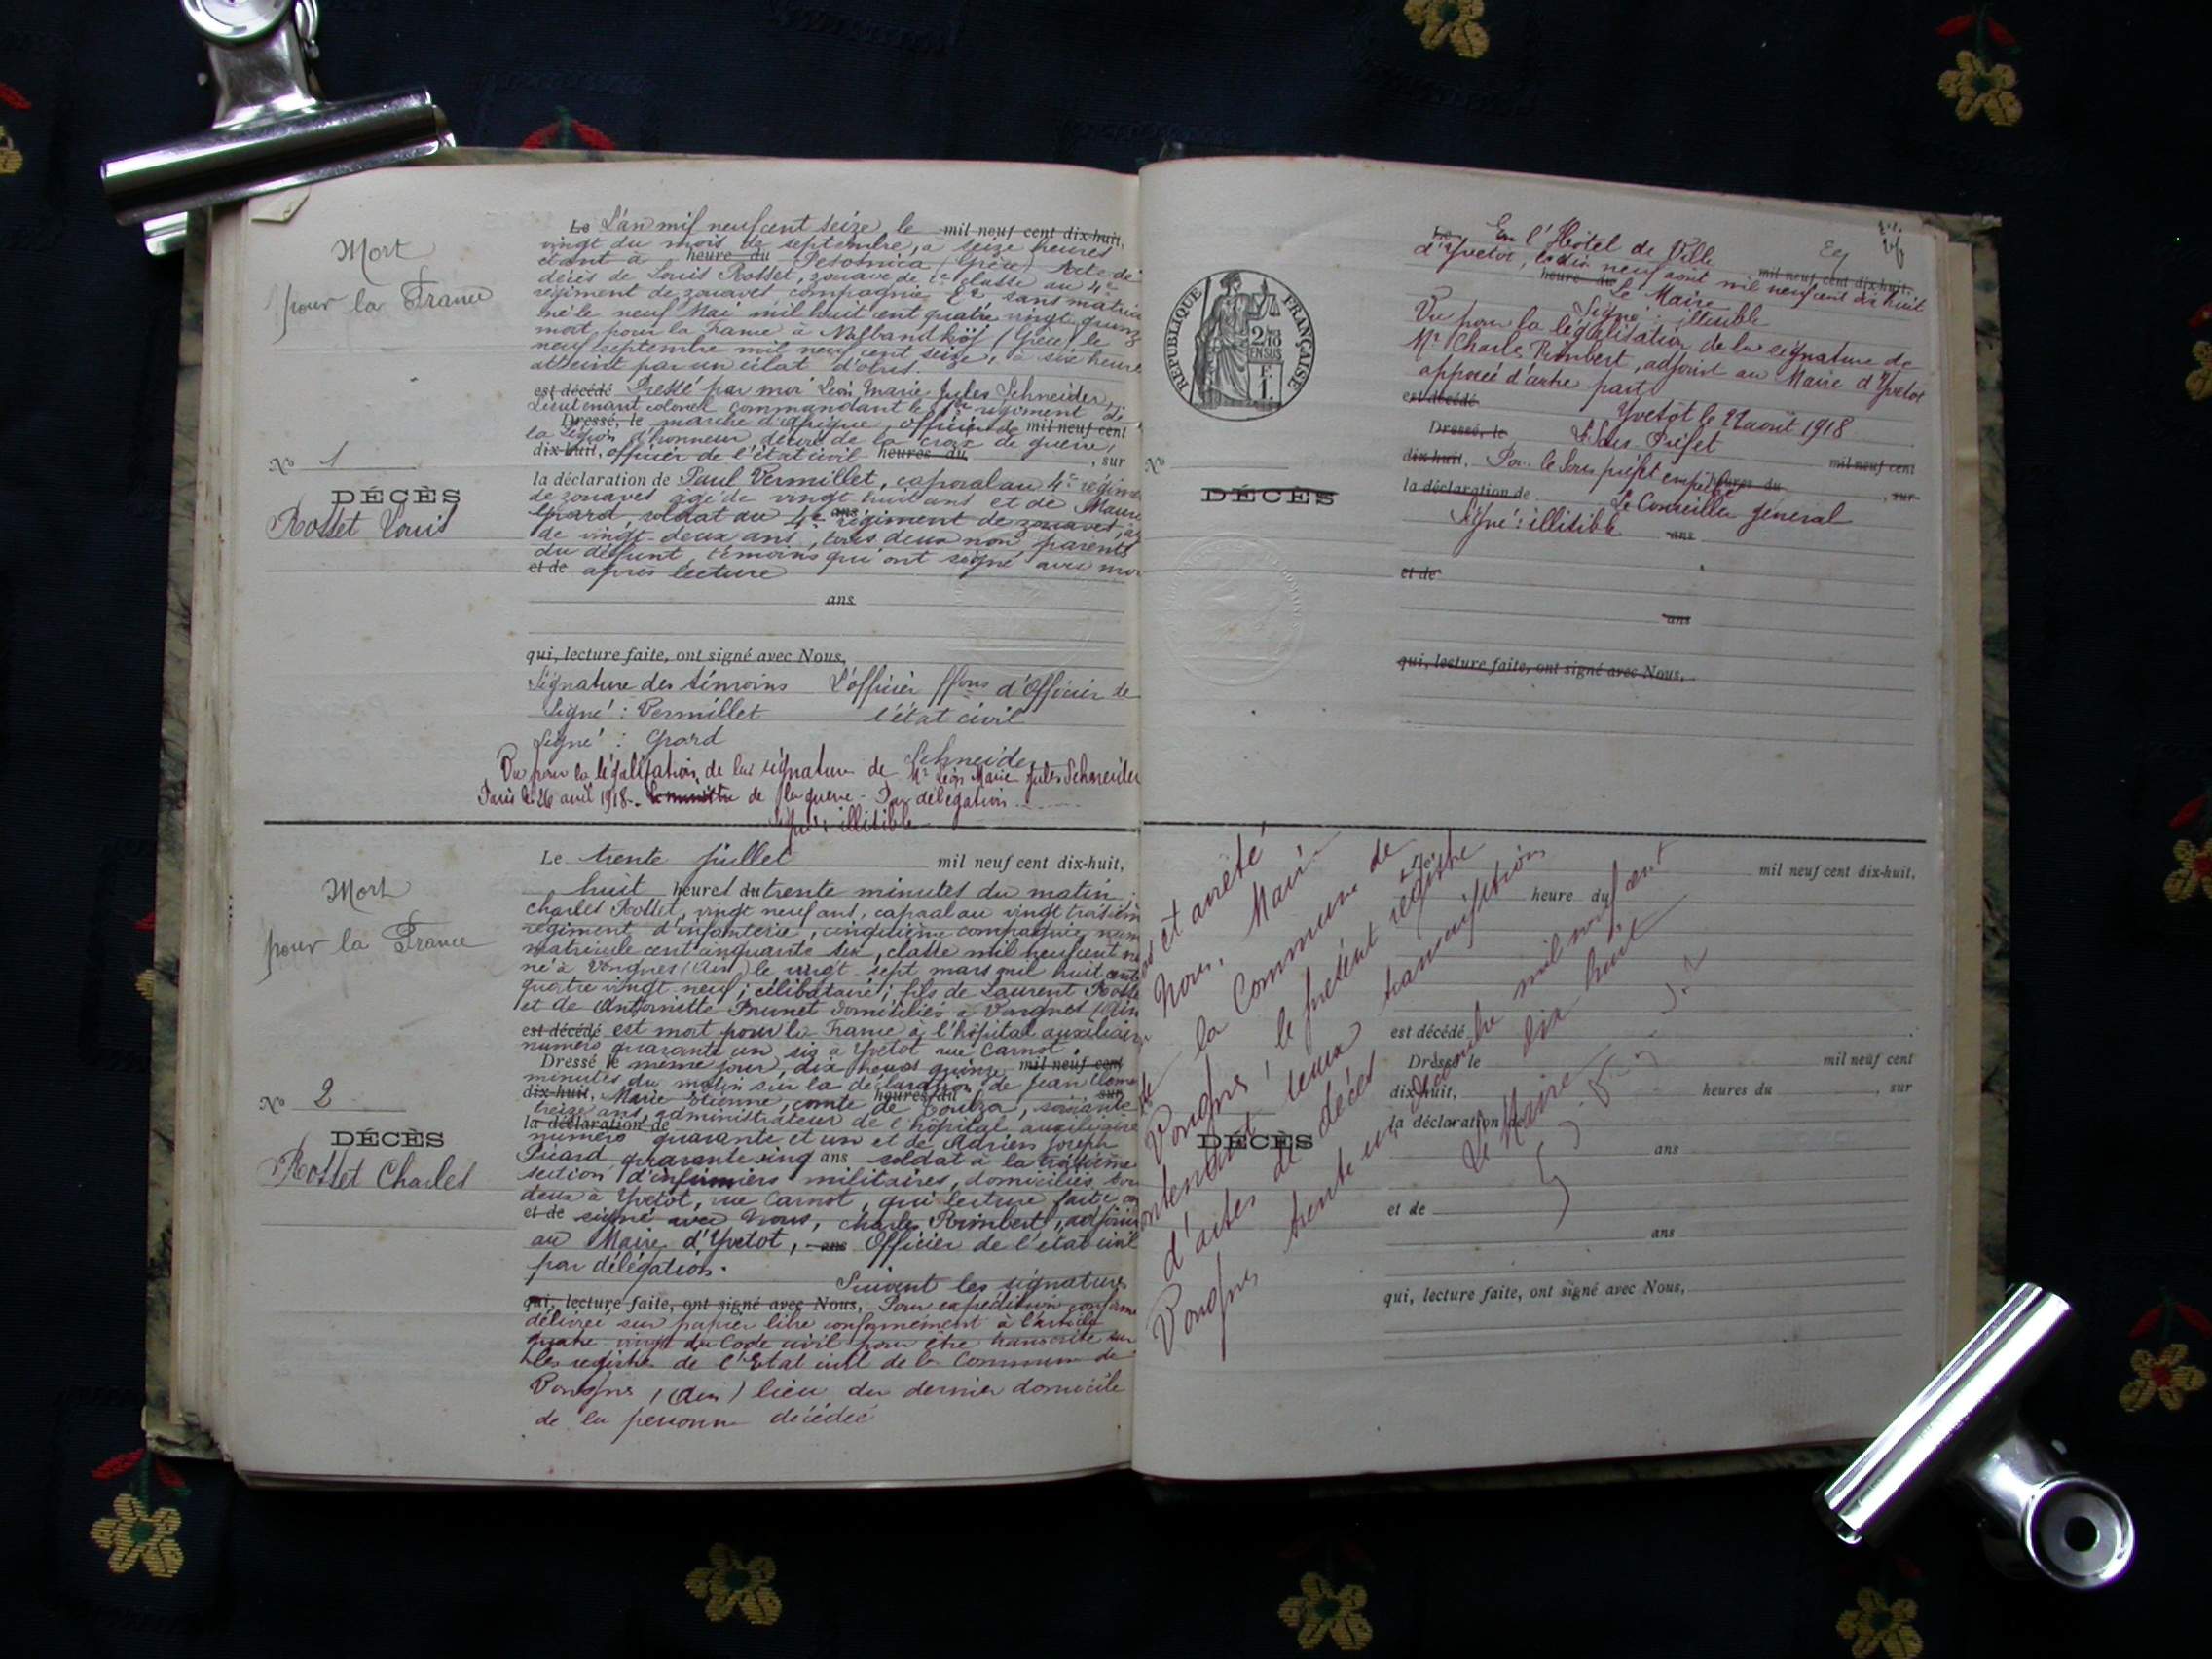 Mort
pour la France
N° 1
DÉCÈS
Rosset Louis
Le L'an mil neuf cent seize le mil neuf cent dix-huit,
vingt du mois de septembre, à seize heures
étant à heure du (Grèce) Acte de
décès de Louis Rosset, zouave de 2e classe au 4e
régiment de zouaves, compagnie sans matricu
né le neuf Mai mil huit cent quatre vingt
mort pour la France à (Grèce) le
neuf septembre mil neuf cent seize, à six heures
atteint par un éclat d'obus.
est décédé Dressé par moi Léon Marie Jules Schneider,
Lieutenant colonel commandant le régiment de
Dressé, le marche d'afrique, officier de mil neuf cent
la légion d'honneur, décoré de la croix de guerre,
dix-huit, officier de l'état civil heures du , sur
la déclaration de Paul Vermillet, caporal au 4e régime
de zouaves âgé de vingt huit ans et de Mauri
Grard, soldat au 4e ans régiment de zouaves, âg
de vingt-deux ans, tous deux non parents
du défunt, témoins qui ont signé avec moi
et de après lecture
ans
qui, lecture faite, ont signé avec Nous,
Signature des témoins L'officier ffons d'Officier de
Signé : Vermillet l'état civil
Signé : Grard
Schneider
Vu pour la légalisation de la signature de Mr Léon Marie Jules Schneider
Paris le 26 avril 1918. Le ministre de la guerre - Par délégation
Signé : illisible
Mort
pour la France
N° 2
DÉCÈS
Rosset Charles
Le trente juillet mil neuf cent dix-huit,
huit heures du trente minutes du matin
Charles Rosset, vingt neuf ans, caporal au vingt troisièm
régiment d'infanterie, cinquième compagnie, num
matricule cent cinquante six, classe mil neuf cent n
né à Vongnes (Ain) le vingt-sept mars mil huit cent
quatre vingt neuf; célibataire; fils de Laurent Rosse
et de Antoinette Brunet domiciliés à Vongnes (Ain
est décédé est mort pour la France à l'hôpital auxiliaire
numéro quarante un sis à Yvetot rue Carnot
Dressé le même jour, dix heures quinze mil neuf cent
minutes du matin sur la déclaration de Jean
dix-huit, Marie Etienne, comte de heures du soixante sur
treize ans, administrateur de l'hôpital auxiliaire
la déclaration de
numéro quarante et un et de Adrien Joseph
Picard quarante cinq ans soldat à la troisième
section d'infirmiers militaires, domiciliés tou
deux à Yvetot, rue Carnot, qui lecture faite on
et de signé avec Nous, Charles Rimbert, adjoin
au Maire d'Yvetot, ans Officier de l'état civil
par délégation.
Suivent les signatures
qui, lecture faite, ont signé avec Nous, Pour expédition conforme
délivrée sur papier libre conformément à l'article
quatre vingt du Code civil pour être transcrite sur
les registre de l'Etat civil de la Commune de
Vongnes (Ain) lieu du dernier domicile
de la personne décédée
RÉPUBLIQUE FRANÇAISE
2/10
EN SUS
F.
1.
N°
DÉCÈS
Le En l'Hôtel de Ville mil neuf cent dix-huit,
d'Yvetot, le dix neuf août mil neuf cent dix huit
heure du Le Maire
Signé : illisible
Vu pour la légalisation de la signature de
Mr Charles Rimbert, adjoint au Maire d'Yvetot
apposée d'autre part
est décédé Yvetot le 22 août 1918
Dressé, le Le Sous Préfet mil neuf cent
dix-huit, Pour le Sous préfet empêché heures du , sur
la déclaration de Le Conseiller général
Signé : illisible ans
et de
ans
qui, lecture faite, ont signé avec Nous,
et arrêté
Nous, Maire
la Commune de
Vongnes, le présent registre
contenant deux transcriptions
d'actes de décès
Vongnes trente un décembre mil neuf cent
dix huit
Le Maire
mil neuf cent dix-huit,
heure du
est décédé
Dressé le mil neuf cent
dix-huit, heures du , sur
la déclaration de
DÉCÈS
ans
et de
ans
qui, lecture faite, ont signé avec Nous,